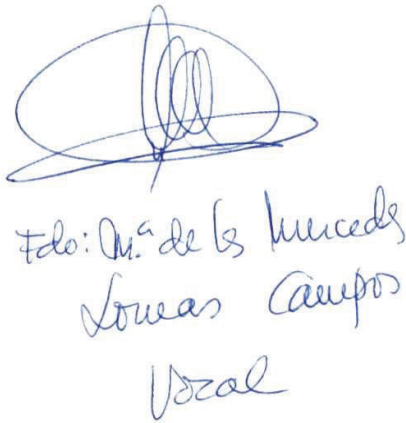 Fdo: Mª de las Mercedes
Lomas Campos
Vocal